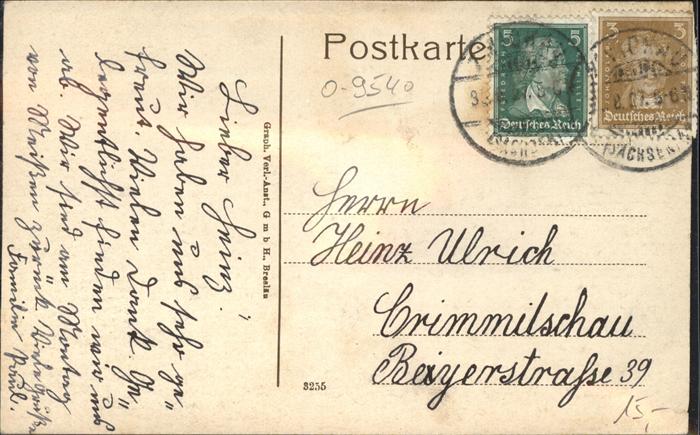 Postkarte
0-9540
5
3
Deutsches Reich
Deutsches Reich
(SACHSEN)
Lieber Heinz!
Wir haben uns sehr ge„
freut. Vielen Dank. Ge„
legentlich finden wir uns
ab. Wir sind am Montag
von Meißen zurück. Viele Grüße
Familie Paul.
Graph. Verl.-Anst., G m b H., Breslau
3255
Herrn
Heinz Ulrich
Crimmitschau
Beyerstraße 39
15,-